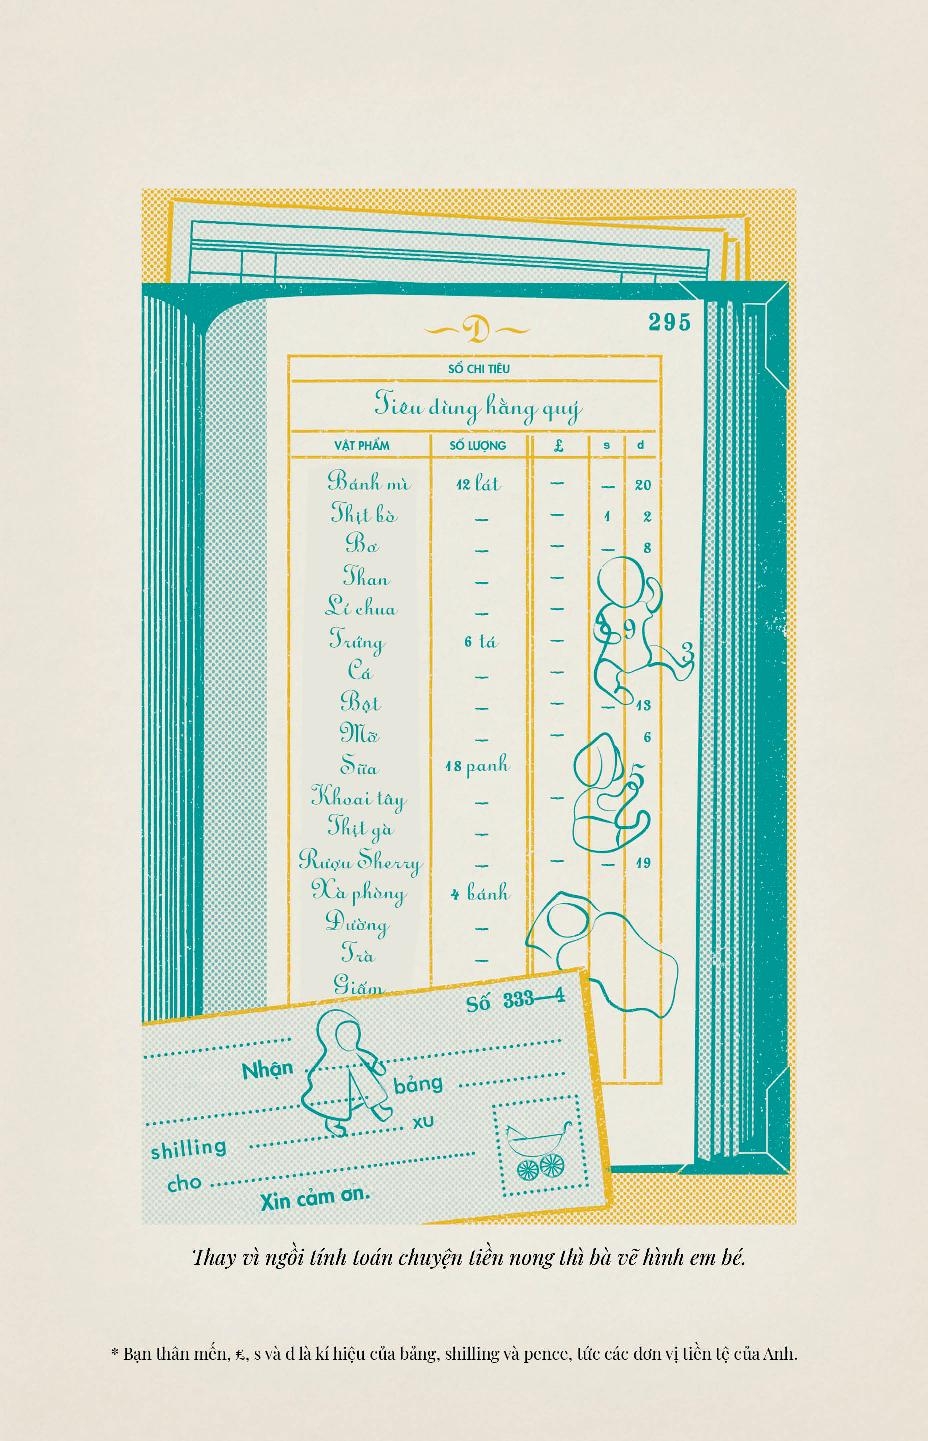 D
295
SỔ CHI TIÊU
Tiêu dùng hằng quý
VẬT PHẨM SỐ LƯỢNG £ s d
Bánh mì 12 lát — — 20
Thịt bò — — 1 2
Bơ — — — 8
Than — —
Lí chua — —
Trứng 6 tá — 9 3
Cá — —
Bột — — — 13
Mỡ — — 6
Sữa 18 panh 5
Khoai tây — —
Thịt gà —
Rượu Sherry — — — 19
Xà phòng 4 bánh
Đường —
Trà —
Giấm
Số 333—4
Nhận
bảng
shilling xu
cho
Xin cảm ơn.
Thay vì ngồi tính toán chuyện tiền nong thì bà vẽ hình em bé.
* Bạn thân mến, £, s và d là kí hiệu của bảng, shilling và pence, tức các đơn vị tiền tệ của Anh.